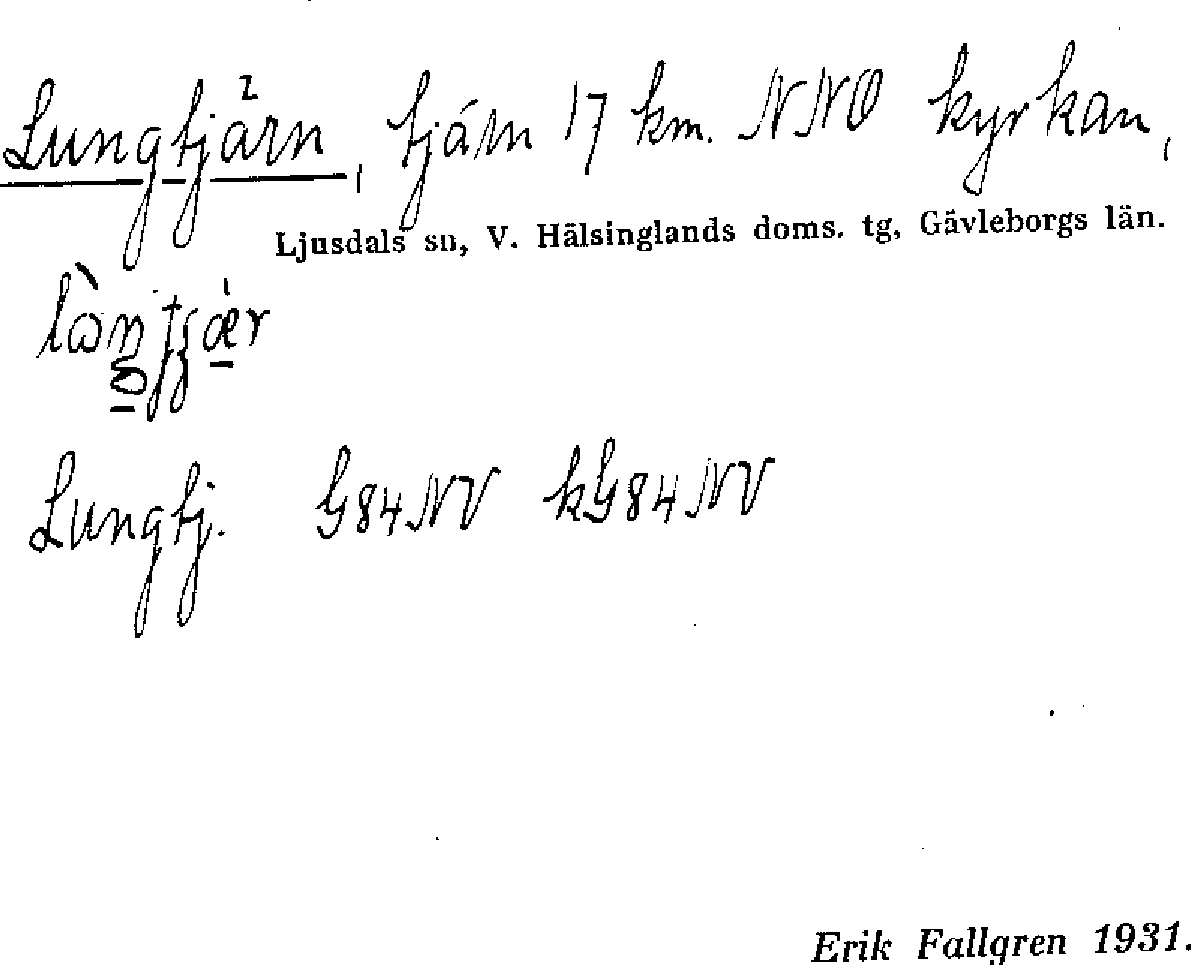 Lungtjärn, tjärn 17 km. NNO kyrkan,
Ljusdals sn, V. Hälsinglands doms. tg, Gävleborgs län.
Lungtj. G84NV kG84NV
Erik Fallgren 1931.